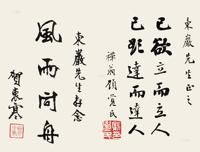 東巖先生正之
己欲立而立人
己欲達而達人
東巖先生存念
風雨同舟
賀衷寒